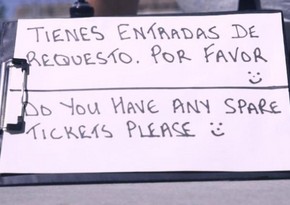 TIENES ENTRADAS DE
REQUESTO. POR FAVOR
DO YOU HAVE ANY SPARE
TICKETS PLEASE